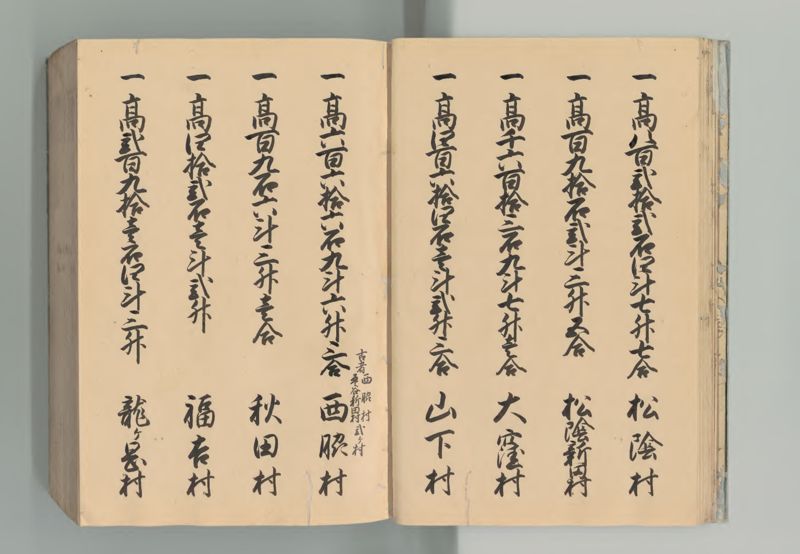 一高八百弐拾弐石四斗七升七合 松陰村
一高百九拾石弐斗三升五合 松陰新田村
一高千六百拾三石九斗七升壱合 大窪村
一高四百六拾四石壱斗弐升三合 山下村
古者西脇村
平谷新田村弐ヶ村
一高六百六拾六石九斗六升三合 西脇村
一高百九石六斗三升壱合 秋田村
一高四拾弐石壱斗弐升 福吉村
一高弐百九拾壱石四斗三升 龍ヶ岡村